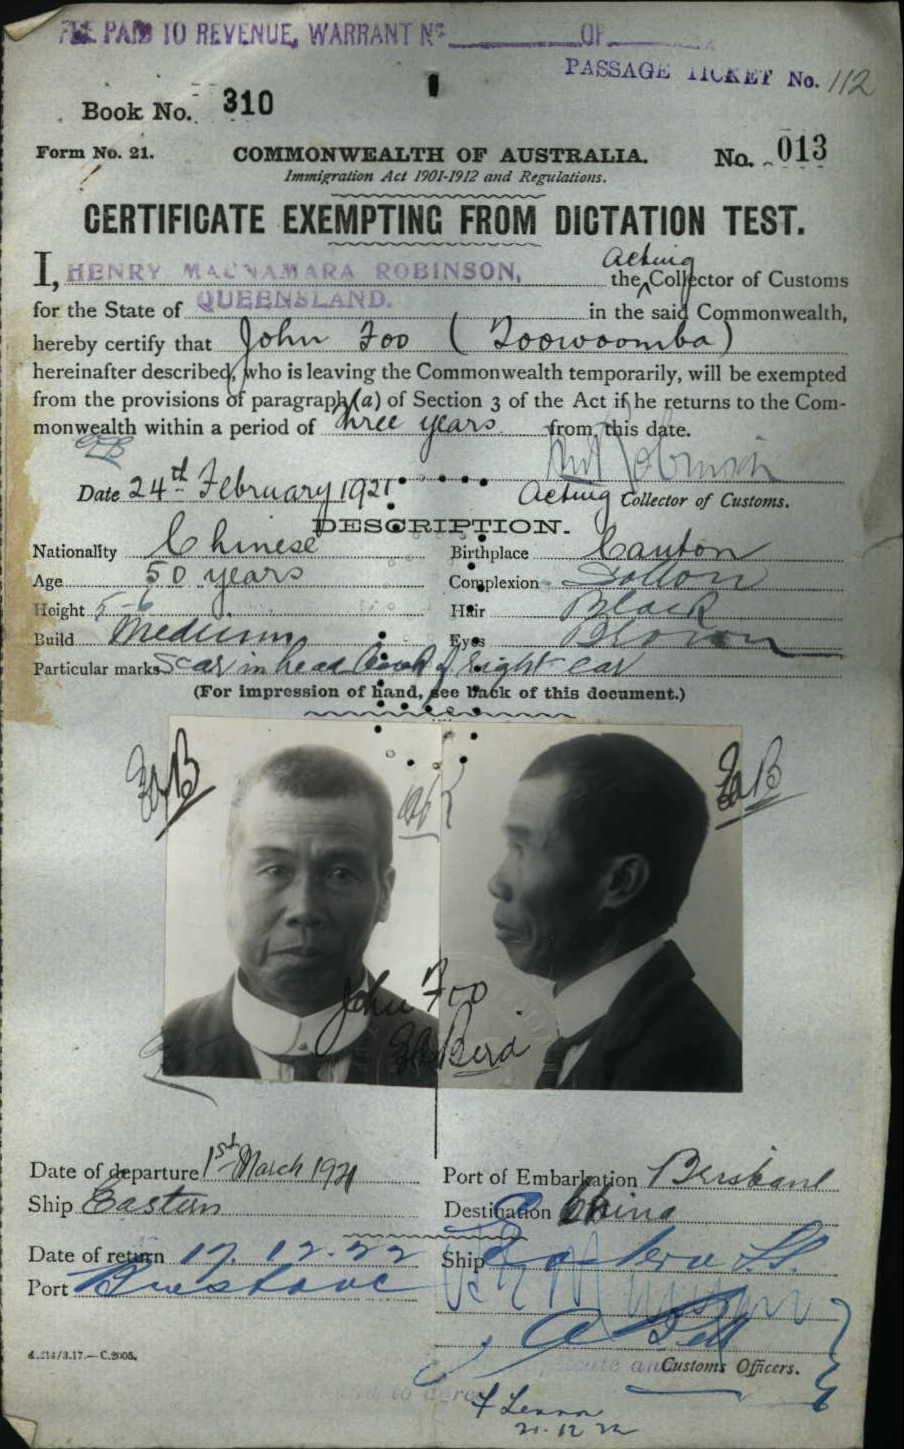 FEE PAID TO REVENUE, WARRANT No. OF
PASSAGE TICKET No. 112
Book No. 310
Form No. 21.
COMMONWEALTH OF AUSTRALIA.
No. 013
Immigration Act 1901-1912 and Regulations.
CERTIFICATE EXEMPTING FROM DICTATION TEST.
I, HENRY MACNAMARA ROBINSON, the Acting Collector of Customs
for the State of QUEENSLAND. in the said Commonwealth,
hereby certify that John Foo (Toowoomba)
hereinafter described, who is leaving the Commonwealth temporarily, will be exempted
from the provisions of paragraph (a) of Section 3 of the Act if he returns to the Com-
monwealth within a period of three years from this date.
Date 24th February 1921
Acting Collector of Customs.
DESCRIPTION.
Nationality Chinese
Birthplace Canton
Age 50 years
Complexion Sallow
Height 5-6
Hair Black
Build Medium
Eyes Brown
Particular marks Scar in head back of right ear
(For impression of hand, see back of this document.)
John Foo
Date of departure 1st March 1921
Port of Embarkation Brisbane
Ship Eastern
Destination China
Date of return 17.12.22
Ship Eastern S.S.
Port Brisbane
Customs Officers.
21.12.22